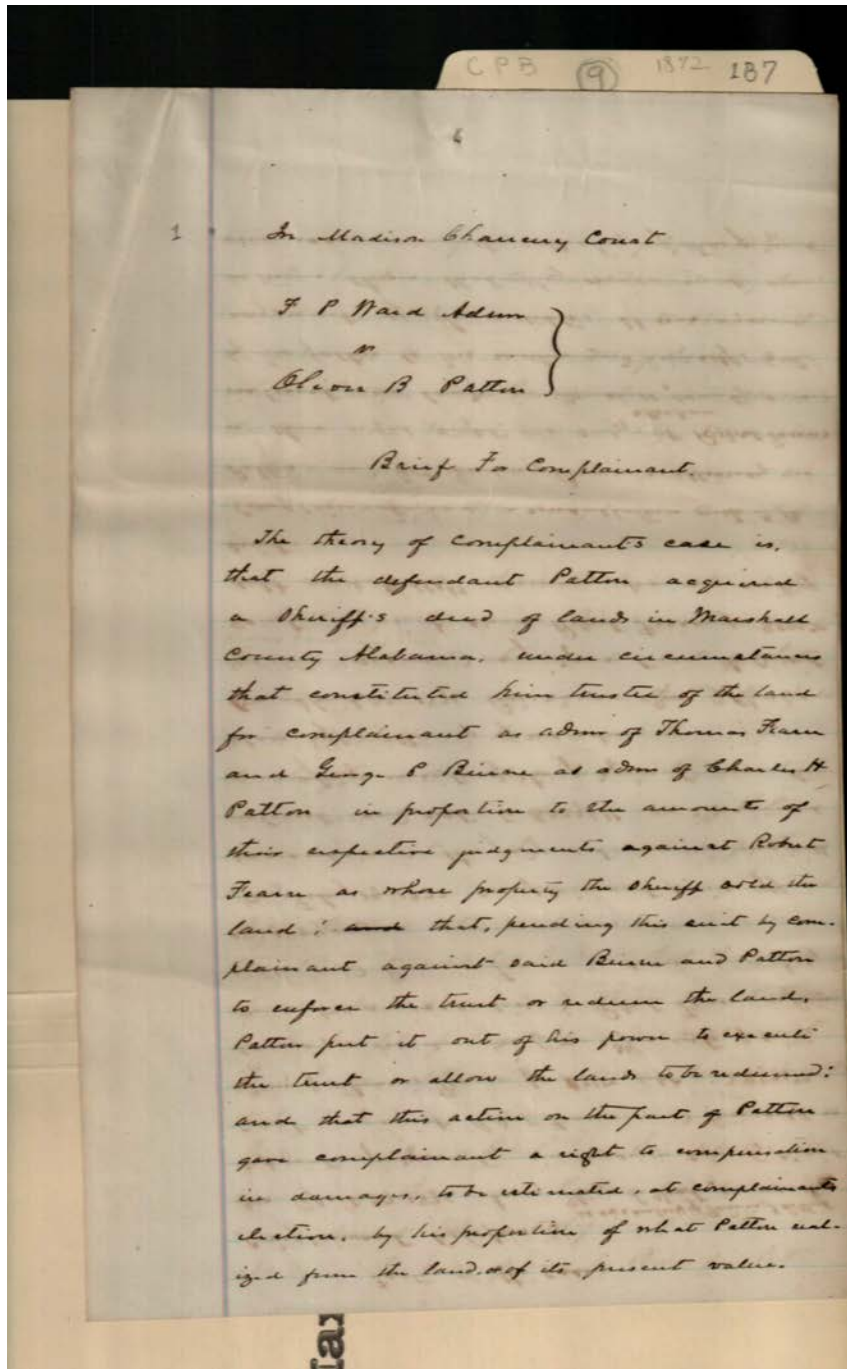 CPB 9 1872 187
6
1
In Madison Chancery Court
F P Ward Admr
v
Oliver B Patton
Brief For Complainant.
The theory of complainant's case is,
that the defendant Patton acquired
a Sheriff's deed of lands in Marshall
County Alabama, under circumstances
that constituted him trustee of the land
for complainant as admr of Thomas Fearn
and George P Beirne as admr of Charles H
Patton in proportion to the amounts of
their respective judgments against Robert
Fearn as whose property the sheriff sold the
land; and that, pending this suit by com-
plainant against said Beirne and Patton
to enforce the trust or redeem the land,
Patton put it out of his power to execute
the trust or allow the lands to be redeemed:
and that this action on the part of Patton
gave complainant a right to compensation
in damages, to be estimated, at complainants
election, by his proportion of what Patton real-
ized from the land, or of its present value.